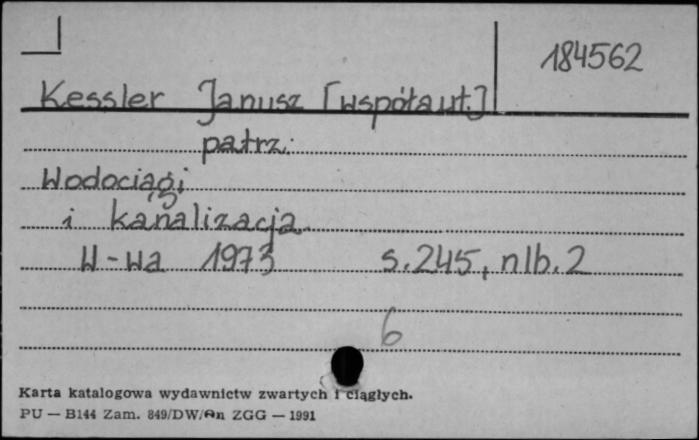 184562
Kessler Janusz [współaut.]
patrz:
Wodociągi
i kanalizacja
W-wa 1973 s.245, nlb.2
6
Karta katalogowa wydawnictw zwartych i ciągłych.
PU — B144 Zam. 849/DW/An ZGG — 1991